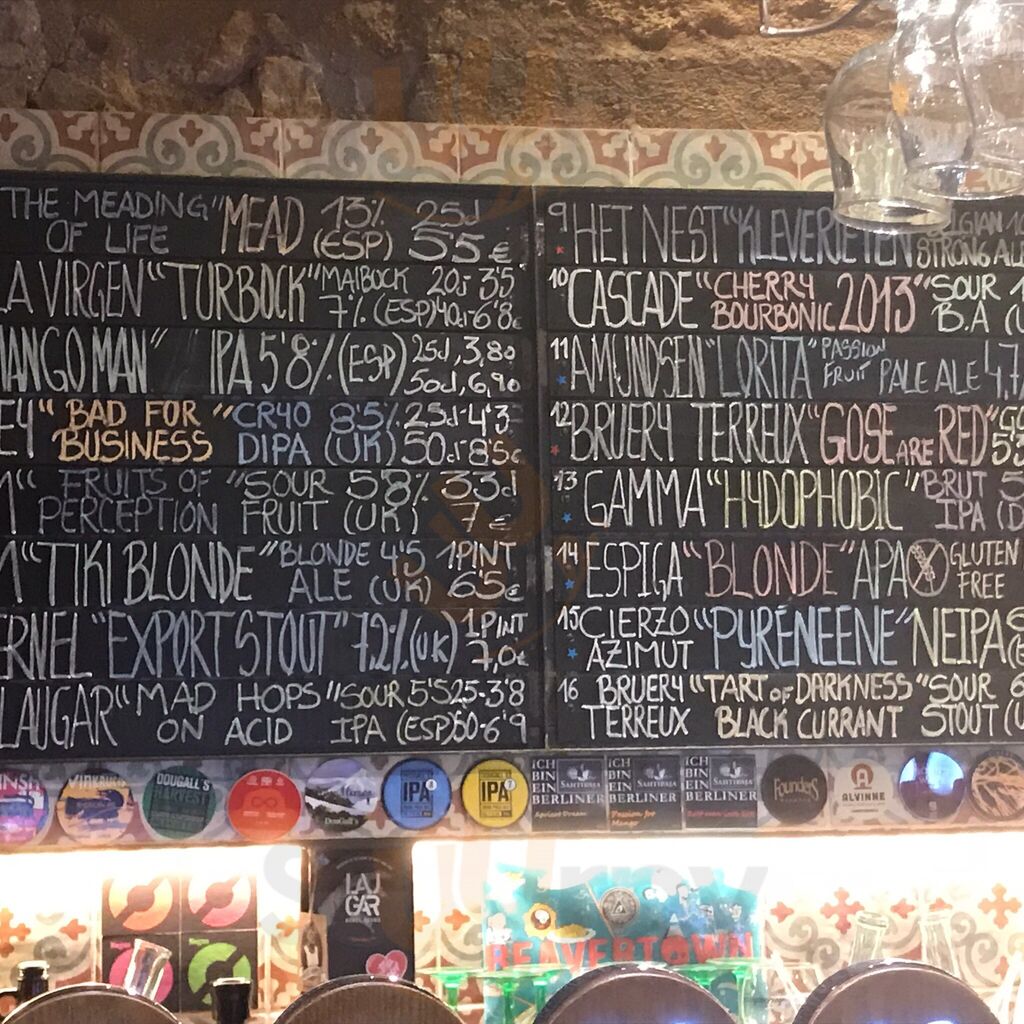 THE MEADING" MEAD 13% 25cl
OF LIFE (ESP) 5'5€
LA VIRGEN "TURBOCK" MAIBOCK 20cl 3'5
7% (ESP) 40cl-6'8€
MANGO MAN" IPA 5'8% (ESP) 25cl, 3,80
50cl, 6,90
"BAD FOR BUSINESS" CR40 8'5% 25cl-4'3
DIPA (UK) 50cl-8'5€
"FRUITS OF "SOUR 5'8% 33cl
PERCEPTION FRUIT (UK) 7€
"TIKI BLONDE" BLONDE 4'5 1PINT
ALE (UK) 6'5€
ERNEL "EXPORT STOUT" 7,2% (UK) 1PINT
7,0€
LAUGAR "MAD HOPS "SOUR 5'5 25-3'8
ON ACID IPA (ESP) 50-6'9
9 HET NEST "KLEVERETEN BELGIAN 10
STRONG ALE
10 CASCADE "CHERRY BOURBONIC 2013" SOUR
B.A (U
11 AMUNDSEN "LORITA" PASSION FRUIT PALE ALE 4,7
12 BRUERY TERREUX "GOSE ARE RED"
13 GAMMA "HYDOPHOBIC" BRUT 5
IPA (D
14 ESPIGA "BLONDE" APA GLUTEN FREE
15 CIERZO "PYRÉNEENE" NEIPA
AZIMUT
16 BRUERY "TART OF DARKNESS" SOUR 6
TERREUX BLACK CURRANT STOUT (U
DOUGALL'S
HARVEST
DouGall's
IPA
DOUGALL'S
IPA
7
iCH
BIN
EiN
BERLINER
Apricot Dream
iCH
BIN
EiN
BERLINER
Passion for
Mango
iCH
BIN
EiN
BERLINER
Founders
ALVINNE
LAU
GAR
BEAVERTOWN